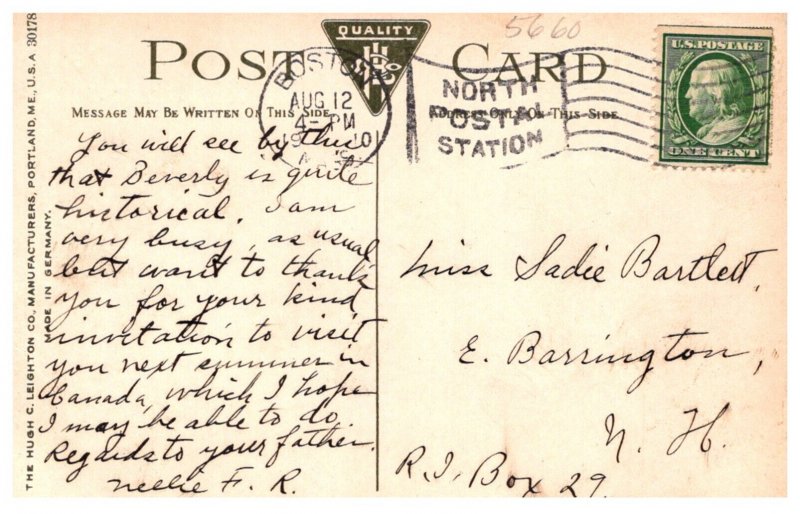 THE HUGH C. LEIGHTON CO., MANUFACTURERS, PORTLAND, ME., U.S.A 30178
MADE IN GERMANY.
5660
POST CARD
QUALITY
BOSTON
AUG 12
4-PM
NORTH
POSTAL
STATION
U.S. POSTAGE
ONE CENT
MESSAGE MAY BE WRITTEN ON THIS SIDE
ADDRESS ONLY ON THIS SIDE.
You will see by this
that Beverly is quite
historical. I am
very busy, as usual,
but want to thank
you for your kind
invitation to visit
you next summer in
Canada, which I hope
I may be able to do.
Regards to your father.
Nellie F. R.
Miss Sadie Bartlett,
E. Barrington,
N. H.
Box 29.